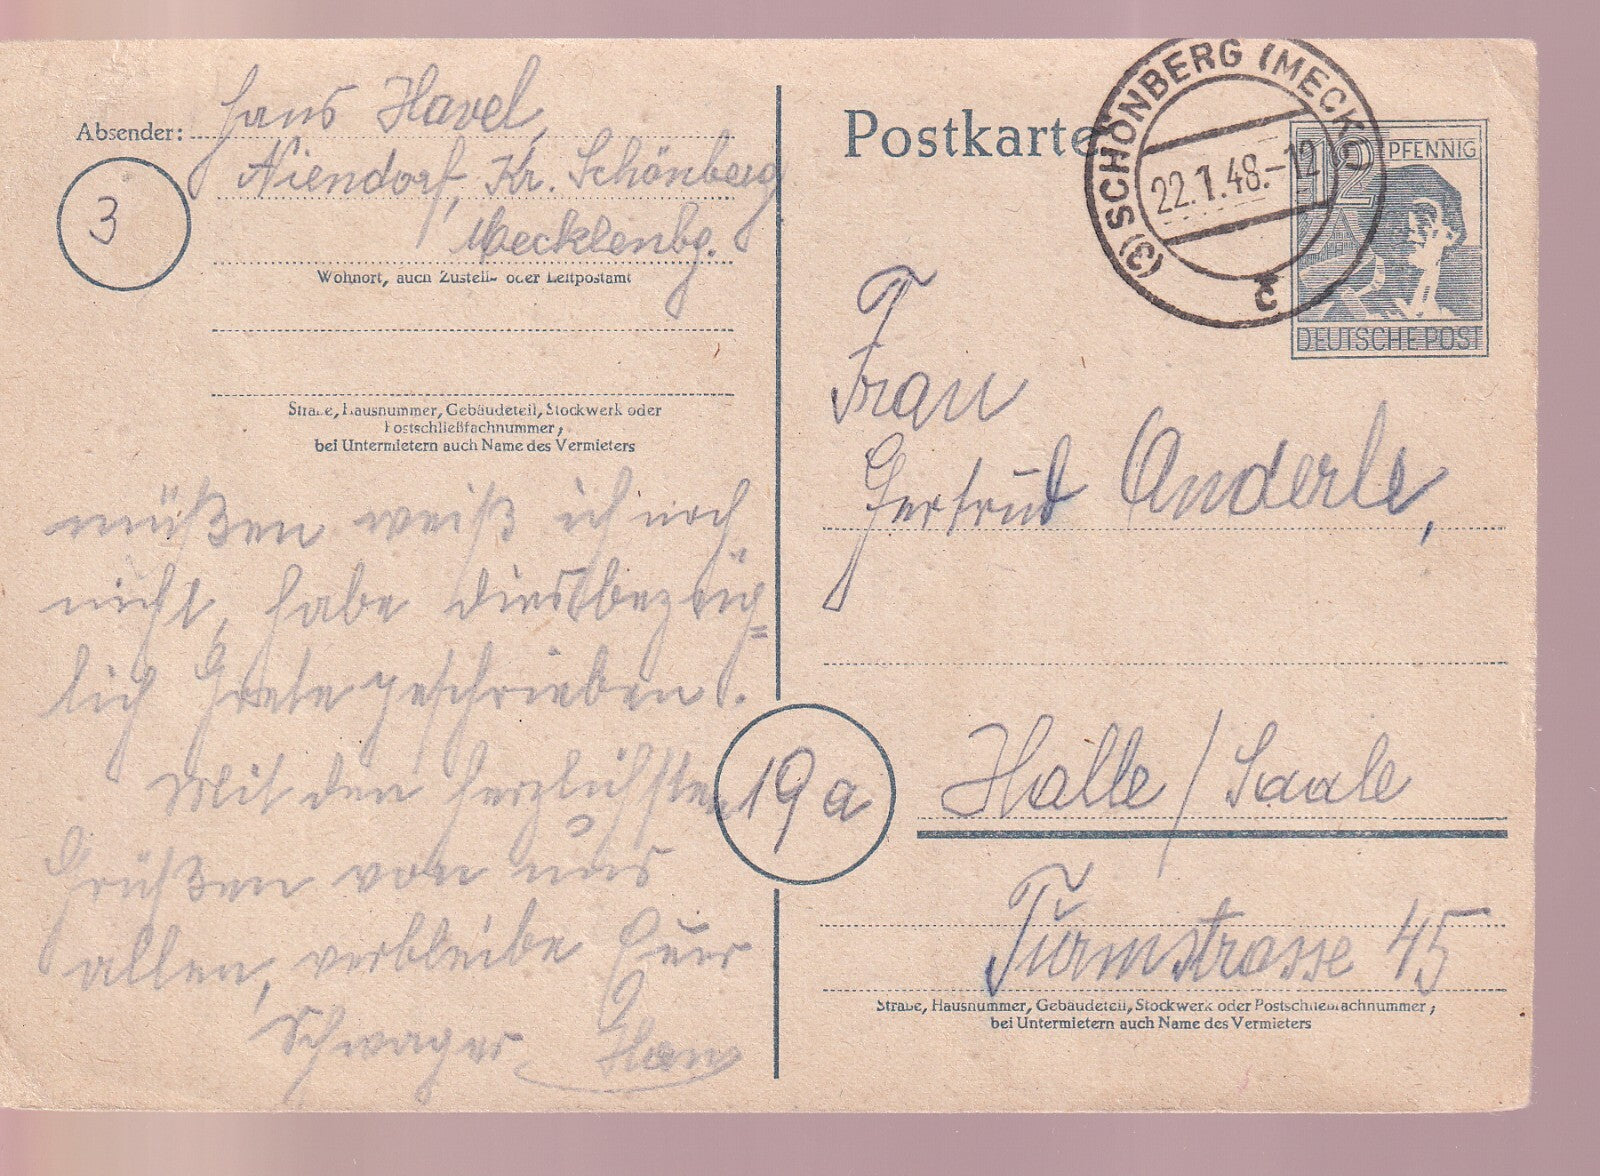 Absender: Hans Havel,
Niendorf, Kr. Schönberg
3
Mecklenbg.
Wohnort, auch Zustell- oder Leitpostamt
Straße, Hausnummer, Gebäudeteil, Stockwerk oder
Postschließfachnummer;
bei Untermietern auch Name des Vermieters
müßen weiß ich noch
nicht, habe diesbezüg=
lich Grete geschrieben.
Mit den herzlichsten
Grüßen von uns
allen, verbleibe Euer
Schwager Hans
Postkarte
(3) SCHÖNBERG (MECKL)
22.1.48.-12
c
12 PFENNIG
DEUTSCHE POST
Frau
Gertrud Anderle,
19a
Halle / Saale
Turmstrasse 45
Straße, Hausnummer, Gebäudeteil, Stockwerk oder Postschließfachnummer;
bei Untermietern auch Name des Vermieters